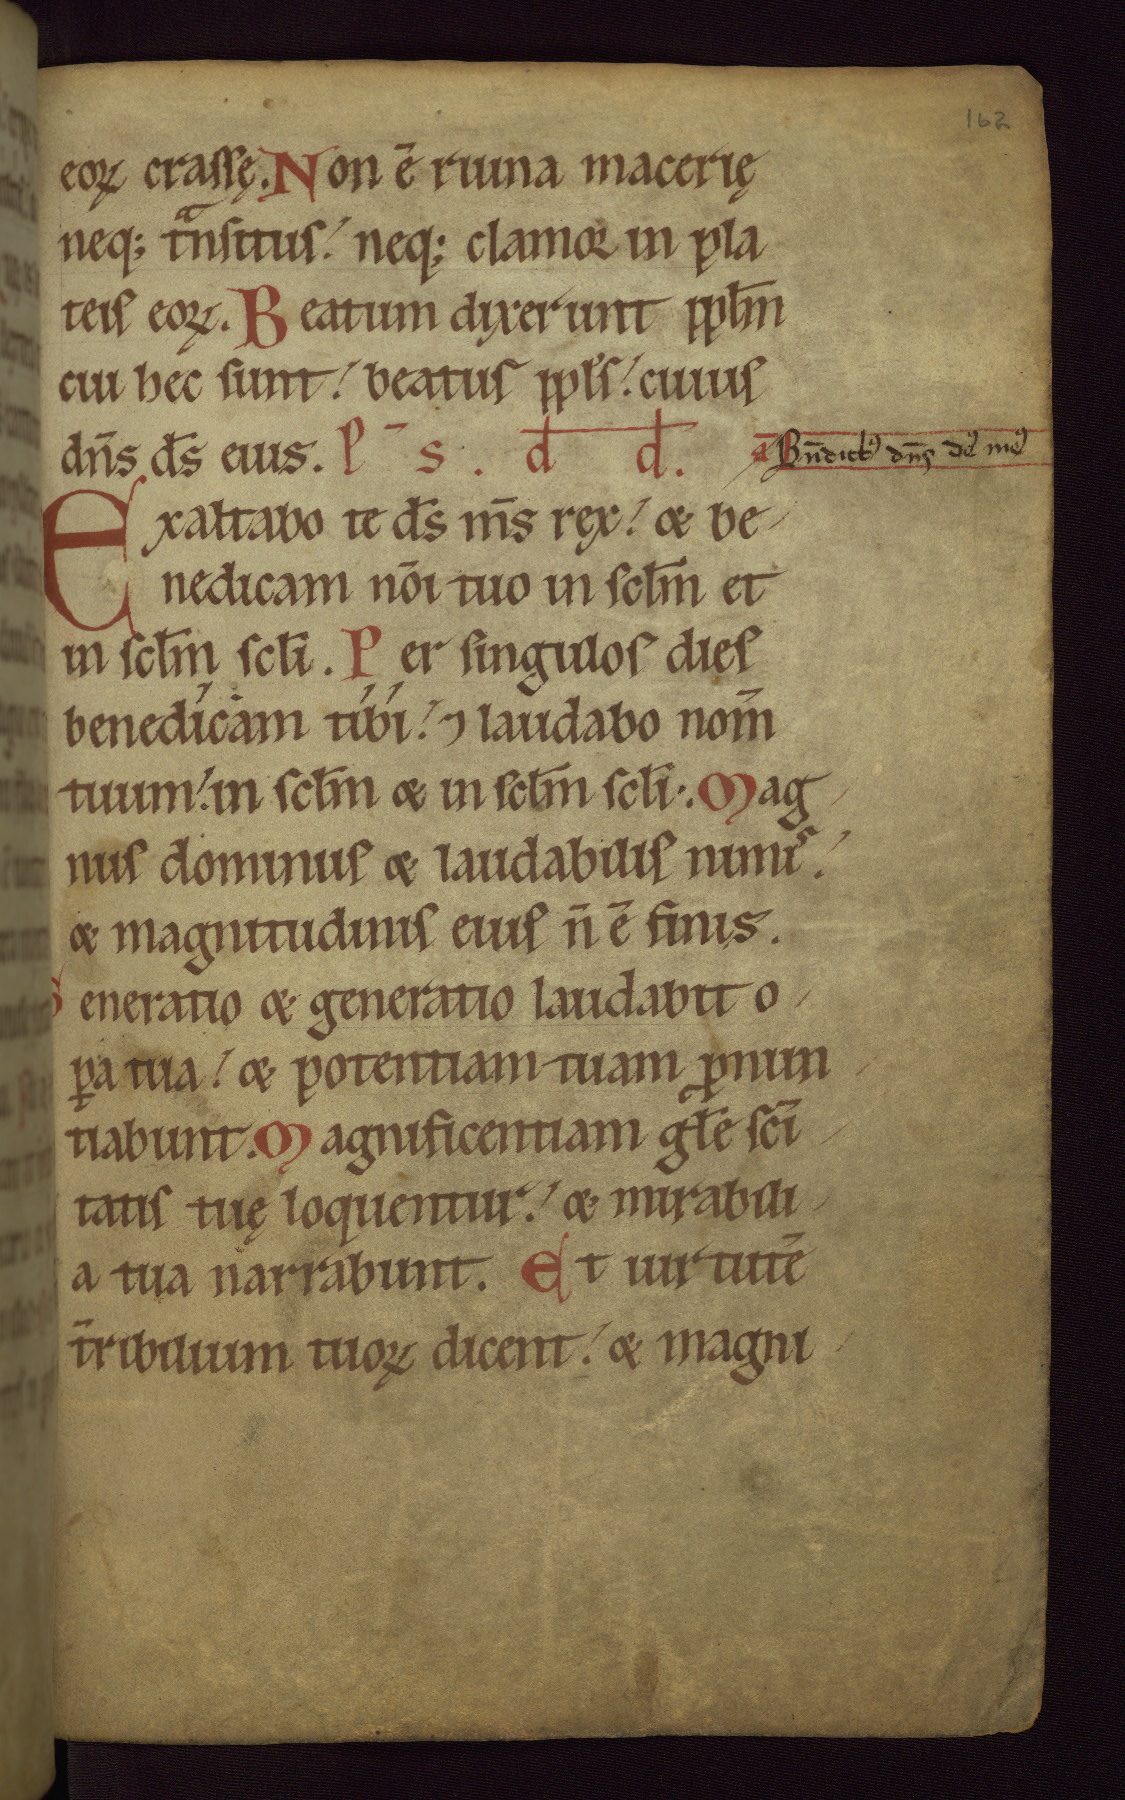 162
eoꝝ crassę. Non ē ruina macerię
neq; tͣnsitus: neq; clamor in pla
teis eoꝝ. Beatum dixerunt pplm̄
cui hec sunt: beatus ppls̄: cuius
dn̄s ds̄ eius. P̄ s. d d. Ā Bn̄dictꝰ dn̄s deꝰ meꝰ
Exaltabo te ds̄ ms̄ rex: & be
nedicam nōi tuo in sclm̄ et
in sclm̄ scli̅. Per singulos dies
benedicam tibi: ⁊ laudabo nom̄
tuum: in sclm̄ & in sclm̄ scli̅. Mag
nus dominus & laudabilis nimis:
& magnitudinis eius n̄ ē finis.
Generatio & generatio laudabit o
ꝑa tua: & potentiam tuam ꝓnun
tiabunt. Magnificentiam gl̄e sci̅
tatis tuę loquentur: & mirabili
a tua narrabunt. Et uirtutē
t̄ribilium tuoꝝ dicent: & magni